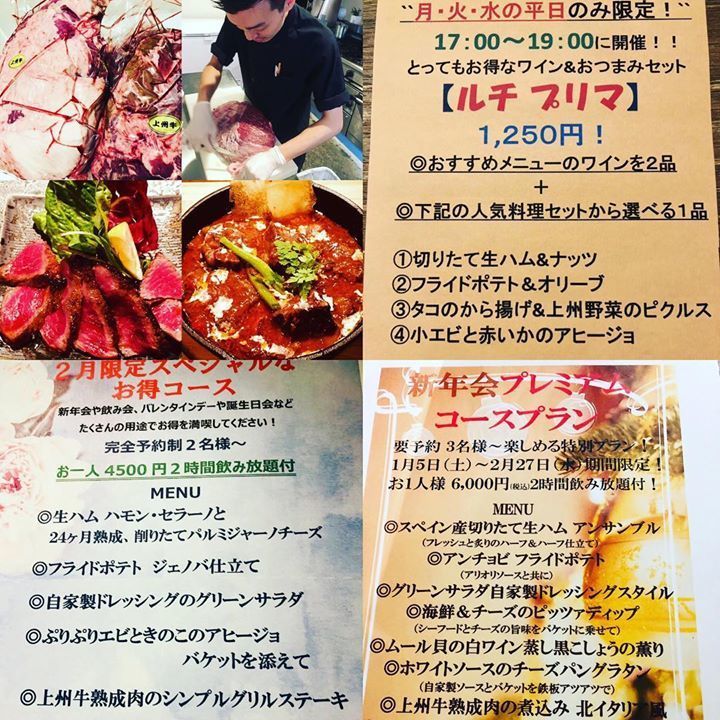 上州牛
上州牛
"月・火・水の平日のみ限定!"
17:00～19:00に開催!!
とってもお得なワイン&おつまみセット
【ルチ プリマ】
1,250円!
◎おすすめメニューのワインを2品
+
◎下記の人気料理セットから選べる1品
①切りたて生ハム&ナッツ
②フライドポテト&オリーブ
③タコのから揚げ&上州野菜のピクルス
④小エビと赤いかのアヒージョ
2月限定スペシャルな
お得コース
新年会や飲み会、バレンタインデーや誕生日会など
たくさんの用途でお得を満喫してください!
完全予約制2名様～
お一人 4500円2時間飲み放題付
MENU
◎生ハム ハモン・セラーノと
24ヶ月熟成、削りたてパルミジャーノチーズ
◎フライドポテト ジェノバ仕立て
◎自家製ドレッシングのグリーンサラダ
◎ぷりぷりエビときのこのアヒージョ
バケットを添えて
◎上州牛熟成肉のシンプルグリルステーキ
新年会プレミアム
コースプラン
要予約 3名様～楽しめる特別プラン!
1月5日(土)～2月27日(水)期間限定!
お1人様 6,000円(税込)2時間飲み放題付!
MENU
◎スペイン産切りたて生ハム アンサンブル
(フレッシュと炙りのハーフ&ハーフ仕立て)
◎アンチョビ フライドポテト
(アリオリソースと共に)
◎グリーンサラダ自家製ドレッシングスタイル
◎海鮮&チーズのピッツァディップ
(シーフードとチーズの旨味をバケットに乗せて)
◎ムール貝の白ワイン蒸し黒こしょうの薫り
◎ホワイトソースのチーズパングラタン
(自家製ソースとバケットを鉄板アツアツで)
◎上州牛熟成肉の煮込み 北イタリア風